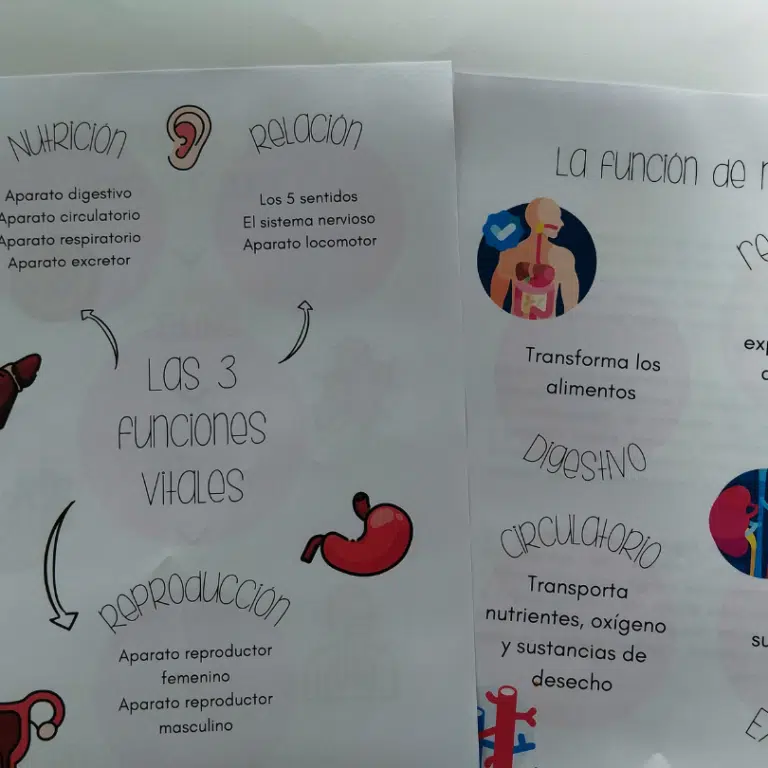 Nutrición
Aparato digestivo
Aparato circulatorio
Aparato respiratorio
Aparato excretor
Relación
Los 5 sentidos
El sistema nervioso
Aparato locomotor
Las 3
funciones
vitales
Reproducción
Aparato reproductor
femenino
Aparato reproductor
masculino
La función de
Transforma los
alimentos
Digestivo
Circulatorio
Transporta
nutrientes, oxígeno
y sustancias de
desecho